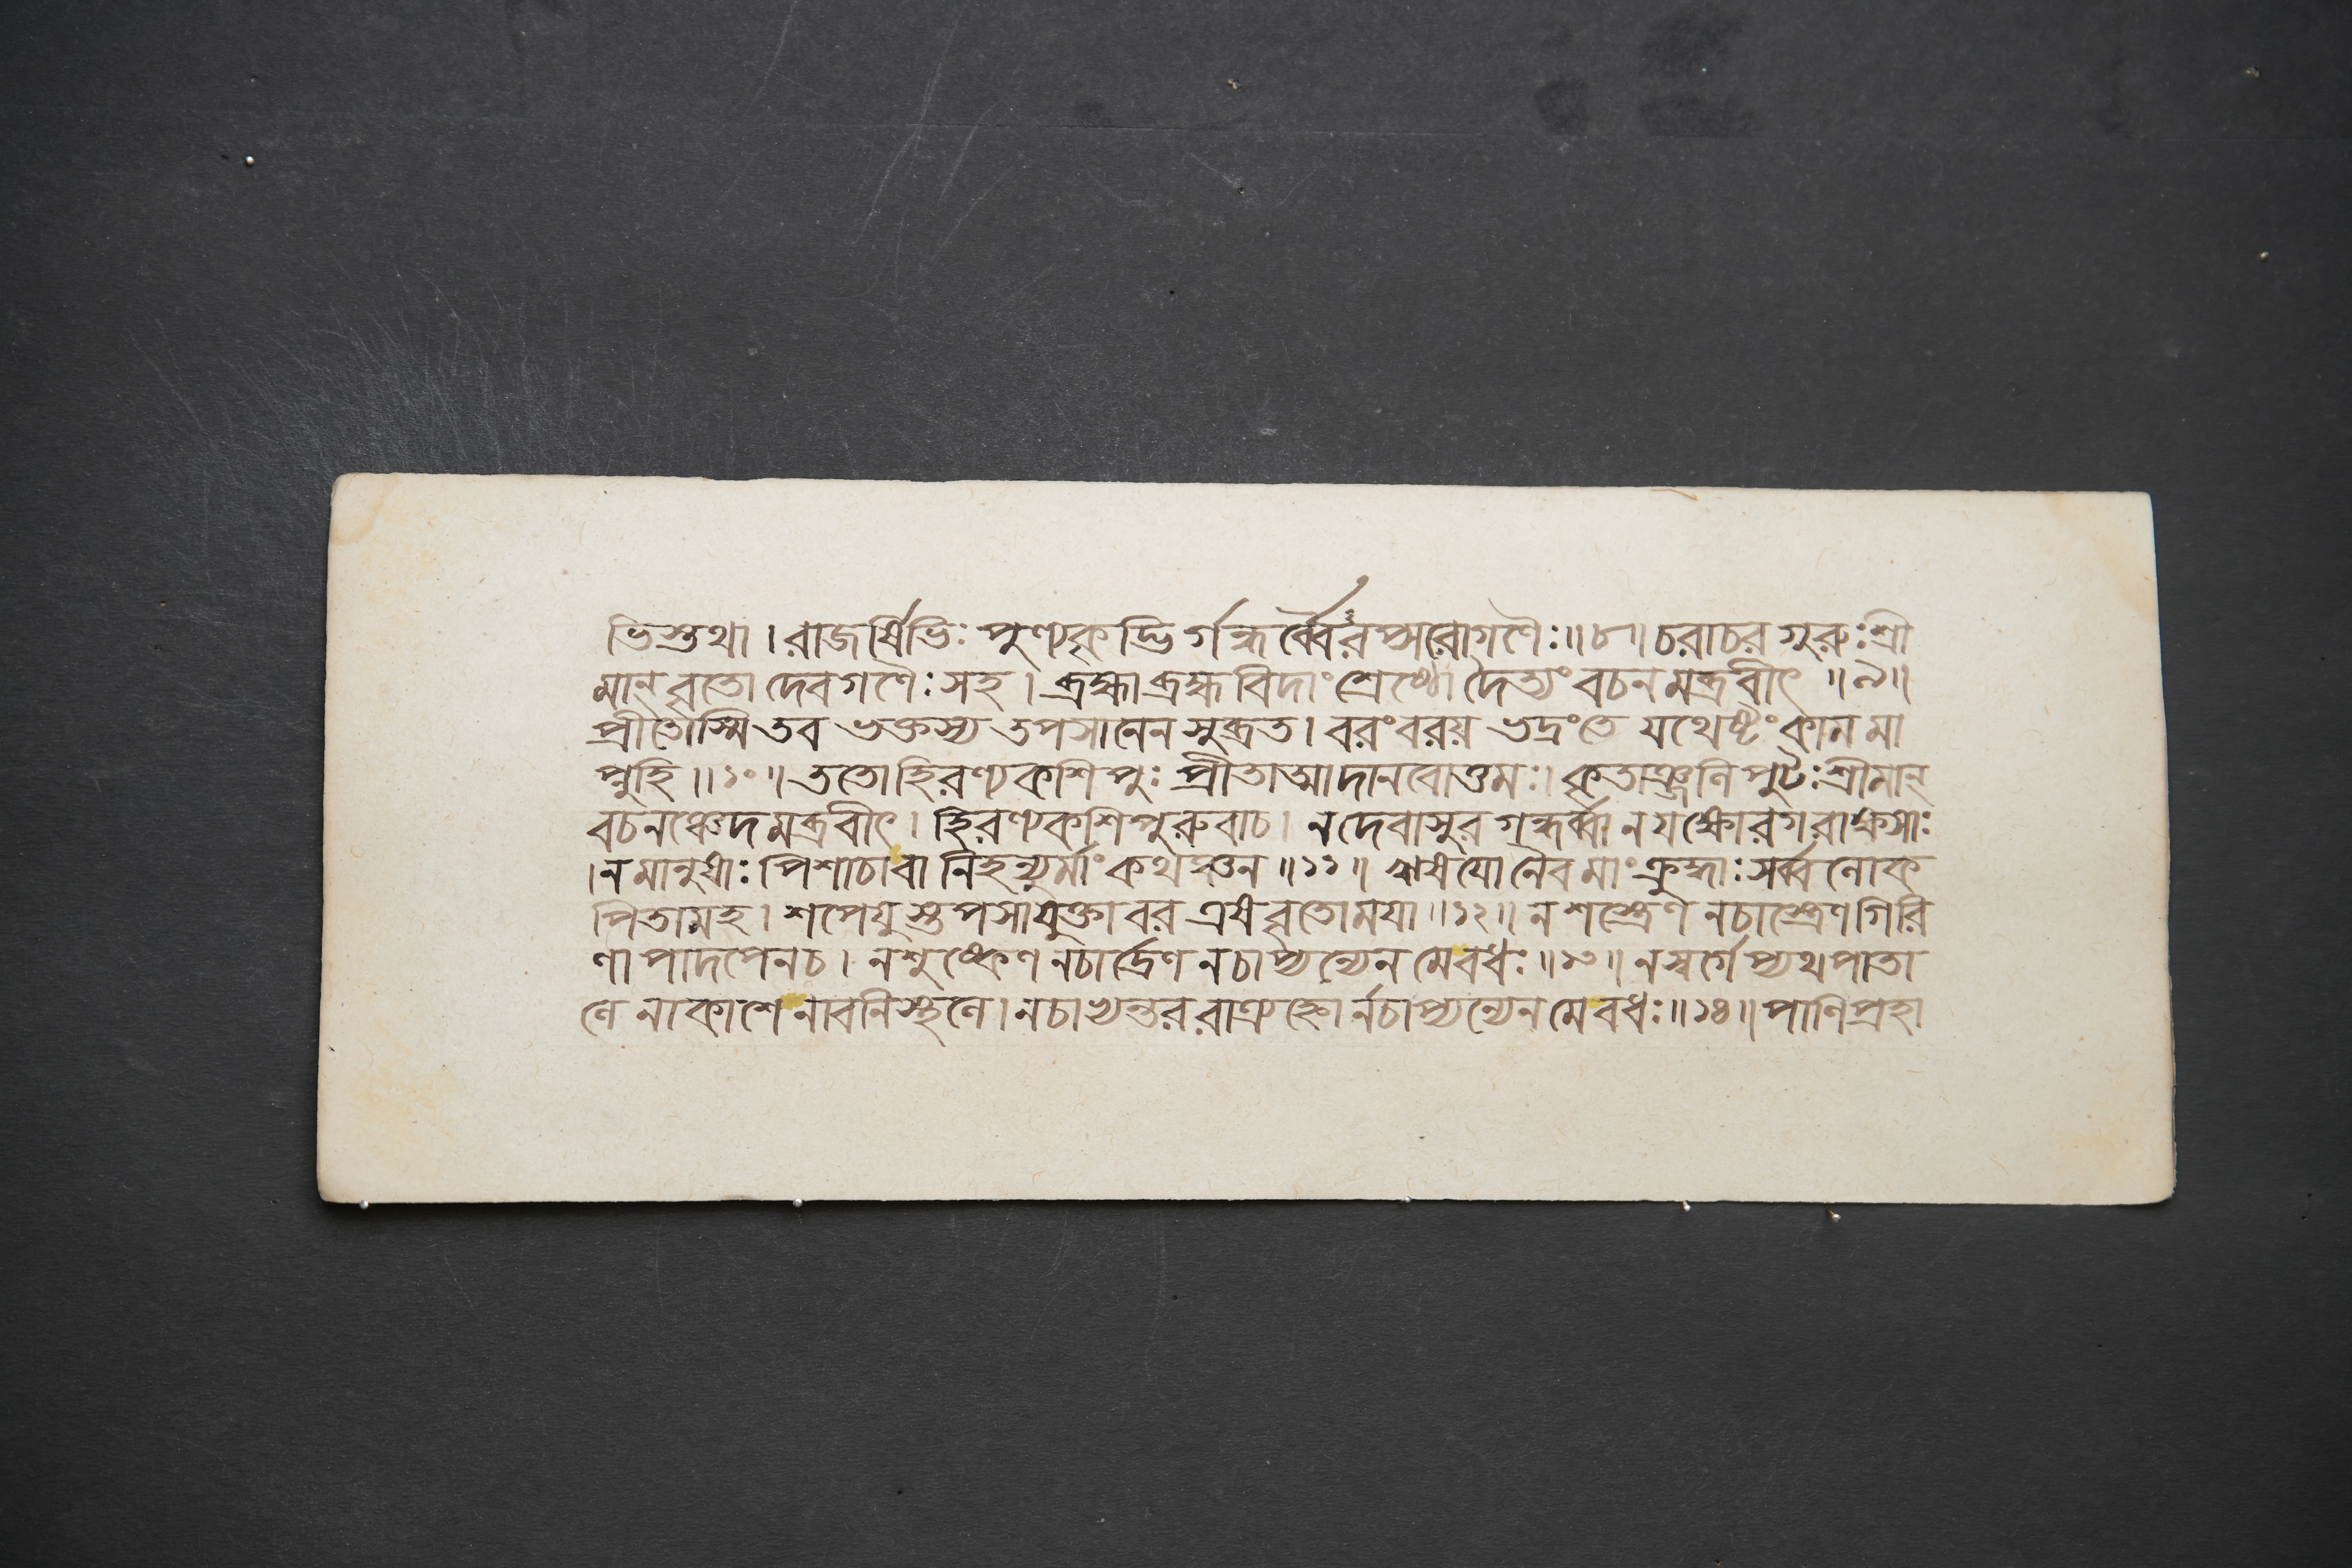 ভিস্তথা । রাজর্ষিভিঃ পুণ্যকৃদ্ভির্গন্ধর্ব্বৈরপ্সরোগণৈঃ ॥ ৮ ॥ চরাচরগুরুঃ শ্রী
মান্ বৃতো দেবগণৈঃ সহ । ব্রহ্মা ব্রহ্মবিদাং শ্রেষ্ঠো দৈত্যং বচনমব্রবীৎ ॥ ৯ ॥
প্রীতোস্মি তব ভক্তস্য তপসানেন সুব্রত । বরং বরয় ভদ্রং তে যথেষ্টং কামমা
প্নুহি ॥ ১০ ॥ ততো হিরণ্যকশিপুঃ প্রীতাত্মা দানবোত্তমঃ । কৃতাঞ্জলিপুটঃ শ্রীমান্
বচনঞ্চেদমব্রবীৎ । হিরণ্যকশিপুরুবাচ । ন দেবাসুরগন্ধর্ব্বা ন যক্ষোরগরাক্ষসাঃ
। ন মানুষাঃ পিশাচা বা নিহন্যুর্মাং কথঞ্চন ॥ ১১ ॥ ঋষযো নৈব মাং ক্রুদ্ধাঃ সর্ব্বলোক
পিতামহ । শপেযুস্তপসা যুক্তা বর এষ বৃতো মযা ॥ ১২ ॥ ন শস্ত্রেণ ন চাস্ত্রেণ গিরি
ণা পাদপেন চ । ন শুষ্কেণ ন চার্দ্রেণ ন চাপ্যন্যেন মে বধঃ ॥ ১৩ ॥ ন স্বর্গেপ্যথ পাতা
লে নাকাশে নাবনিস্থলে । ন চাভ্যন্তররাত্র্যহ্নোর্ন চাপ্যন্যেন মে বধঃ ॥ ১৪ ॥ পাণিপ্রহা